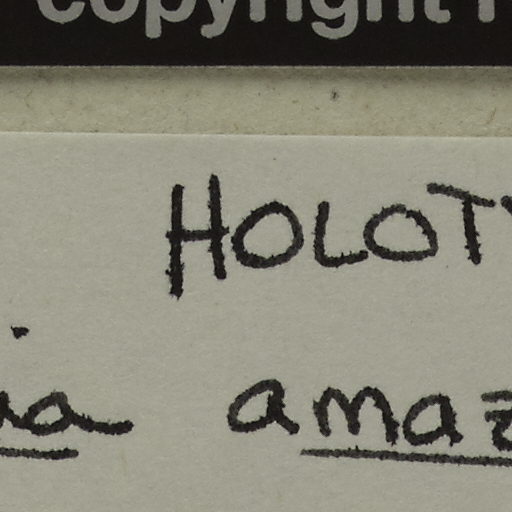 copyright r
HOLOTY
ia amaz